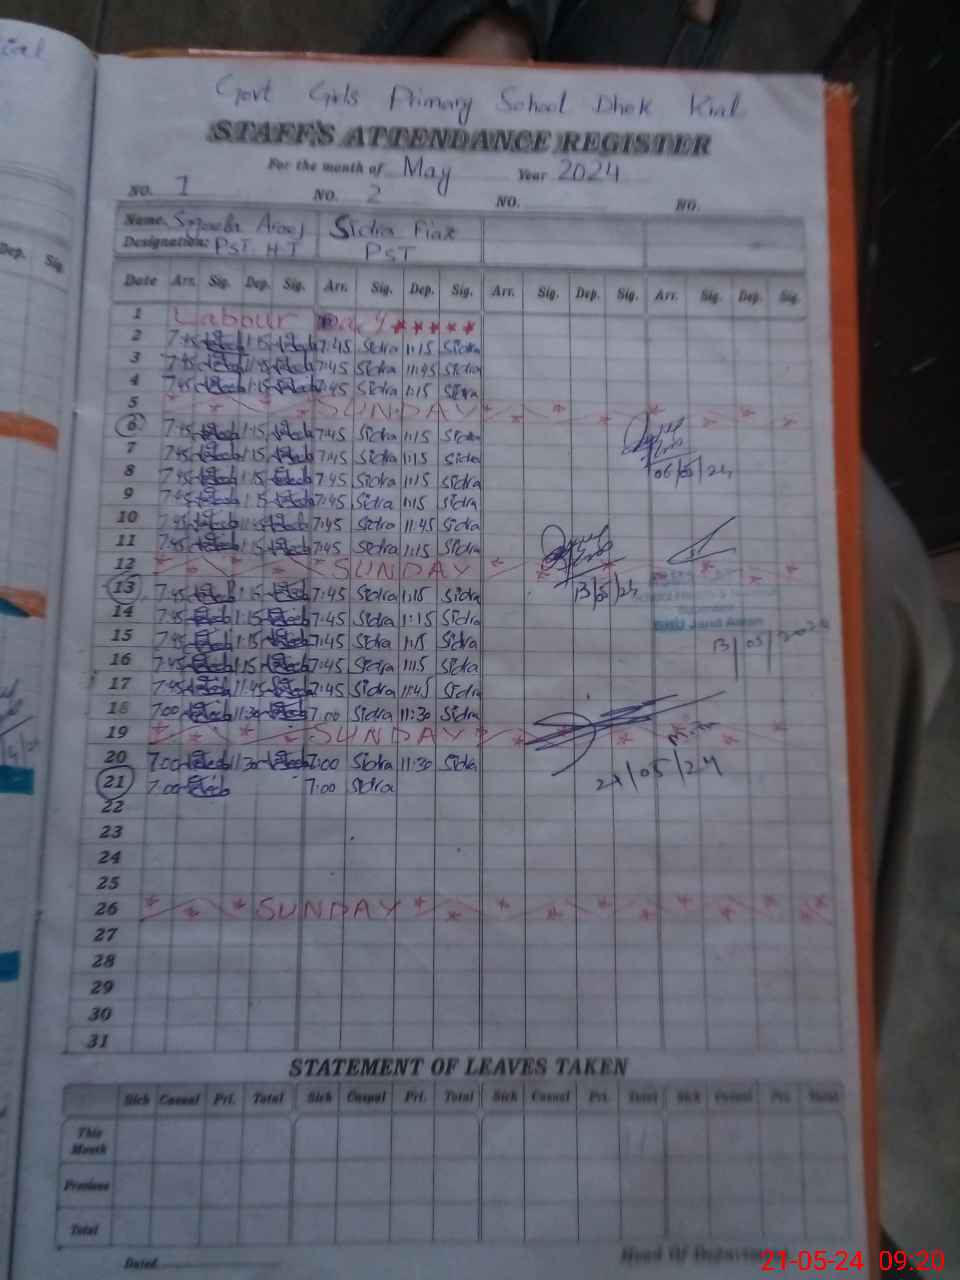 Govt Girls Primary School Dhok Kial
STAFF'S ATTENDANCE REGISTER
For the month of May Year 2024
NO. 1 NO. 2 NO. NO.
Name: Arooj Sidra Fiaz
Designation: PST. H.T PST
Date Arr. Sig. Dep. Sig. Arr. Sig. Dep. Sig. Arr. Sig. Dep. Sig. Arr. Sig. Dep. Sig.
1 Labour Day *****
2 7:45 1:15 7:45 Sidra 1:15 Sidra
3 7:45 11:45 7:45 Sidra 11:45 Sidra
4 7:45 1:15 7:45 Sidra 1:15 Sidra
5 SUNDAY
6 7:45 1:15 7:45 Sidra 1:15 Sidra
7 7:45 1:15 7:45 Sidra 1:15 Sidra
06/05/24
8 7:45 1:15 7:45 Sidra 1:15 Sidra
9 7:45 1:15 7:45 Sidra 1:15 Sidra
10 7:45 11:45 7:45 Sidra 11:45 Sidra
11 7:45 1:15 7:45 Sidra 1:15 Sidra
12 SUNDAY
13 7:45 1:15 7:45 Sidra 1:15 Sidra
13/05/24
14 7:45 1:15 7:45 Sidra 1:15 Sidra
15 7:45 1:15 7:45 Sidra 1:15 Sidra
13/05/2024
16 7:45 1:15 7:45 Sidra 1:15 Sidra
17 7:45 11:45 7:45 Sidra 11:45 Sidra
18 7:00 11:30 7:00 Sidra 11:30 Sidra
19 SUNDAY
20 7:00 11:30 7:00 Sidra 11:30 Sidra
21/05/24
21 7:00 7:00 Sidra
22
23
24
25
26 SUNDAY
27
28
29
30
31
STATEMENT OF LEAVES TAKEN
Sick Casual Pri. Total Sick Casual Pri. Total Sick Casual Pri. Total Sick Casual Pri. Total
This
Month
Previous
Total
Dated
Head Of
21-05-24 09:20
Dep. Sig.